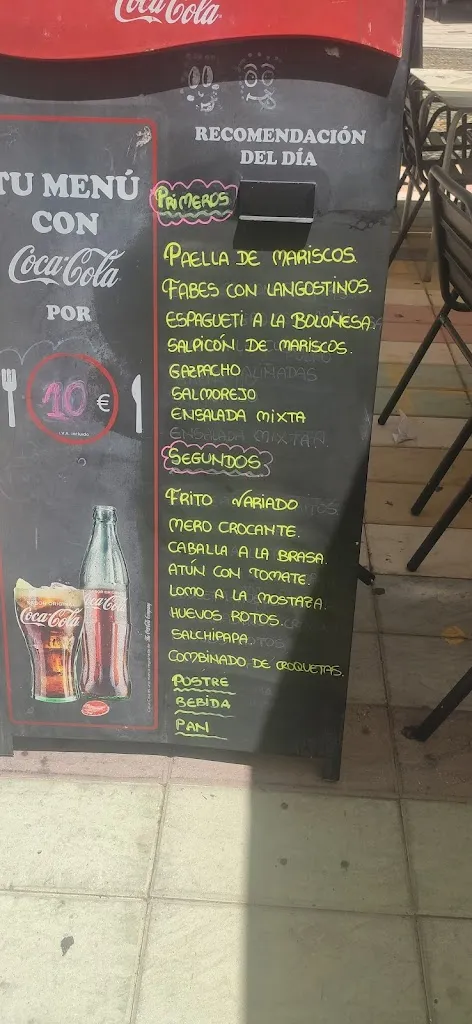 Coca-Cola
TU MENÚ
CON
Coca-Cola
POR
10 €
Coca-Cola
Coca-Cola
RECOMENDACIÓN
DEL DÍA
PRIMEROS
PAELLA DE MARISCOS.
FABES CON LANGOSTINOS.
ESPAGUETI A LA BOLOÑESA
SALPICÓN DE MARISCOS.
GAZPACHO
SALMOREJO
ENSALADA MIXTA
ENSALADA MIXTA
SEGUNDOS
FRITO VARIADO
MERO CROCANTE.
CABALLA A LA BRASA.
ATÚN CON TOMATE.
LOMO A LA MOSTAZA.
HUEVOS ROTOS.
SALCHIPAPA
COMBINADO DE CROQUETAS.
POSTRE
BEBIDA
PAN